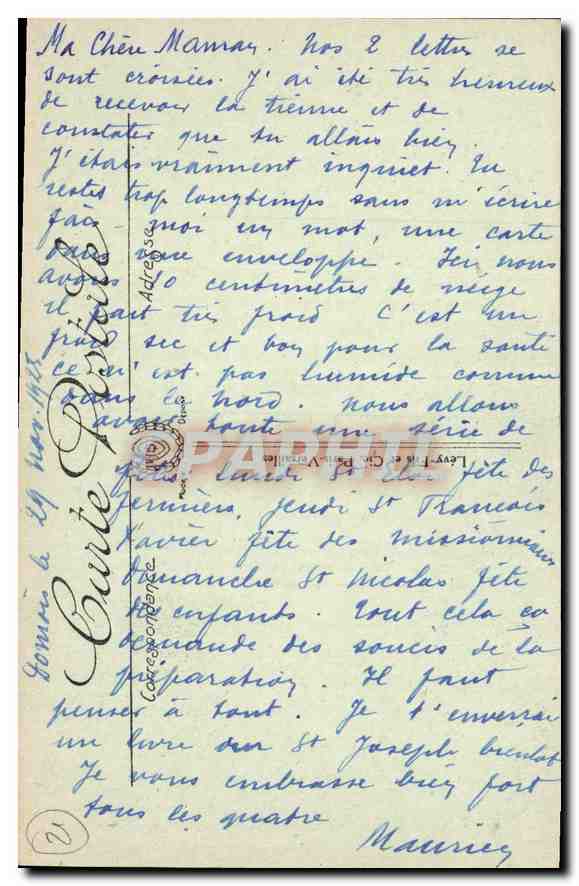 Ma Chère Maman. Nos 2 lettres se
sont croisées. J'ai été très heureux
de recevoir la tienne et de
constater que tu allais bien.
J'étais vraiment inquiet. Tu
restes trop longtemps sans m'écrire
fais-moi un mot, une carte
dans une enveloppe. Ici nous
avons 10 centimètres de neige
il fait très froid C'est un
froid sec et bon pour la santé
ce n'est pas humide comme
dans le Nord. Nous allons
avoir toute une série de
fêtes lundi St Eloi fête des
fermiers, jeudi St François
Xavier fête des missionnaires
Dimanche St Nicolas fête
des enfants. Tout cela
demande des soucis de la
préparation. Il faut
penser à tout. Je t'enverrai
un livre sur St Joseph bientôt
Je vous embrasse bien fort
tous les quatre
Maurice
Domois le 29 nov. 1925
Carte Postale
Correspondance
Adresse
Lévy Fils et Cie, Paris-Versailles
PAPHIL
21